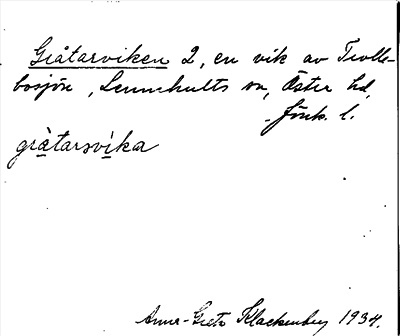 Gråtarviken 2, en vik av Trolle-
bosjön, Lemnhults sn, Öster hd,
Jönk. l.
gråtarsvika
Anna-Greta Klackenberg 1934.